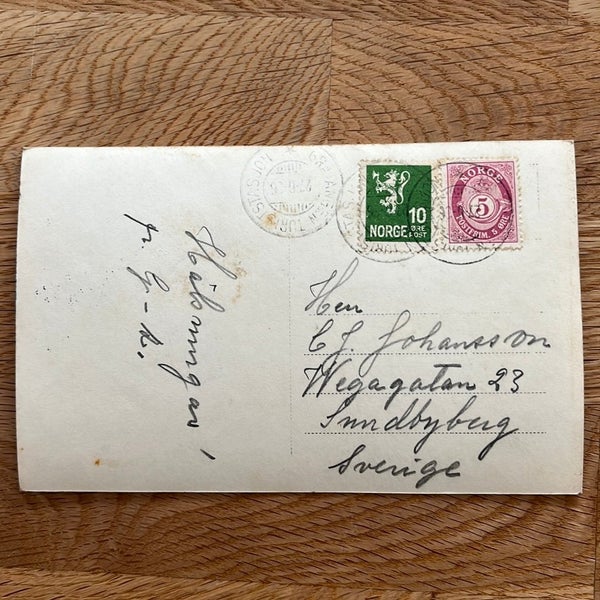 Hälsningar!
fr. G-n.
10
ØRE
NORGE POST
NORGE
5
POSTFRIM. 5 ØRE
Herr
C J. Johansson
Wegagatan 23
Sundbyberg
Sverige